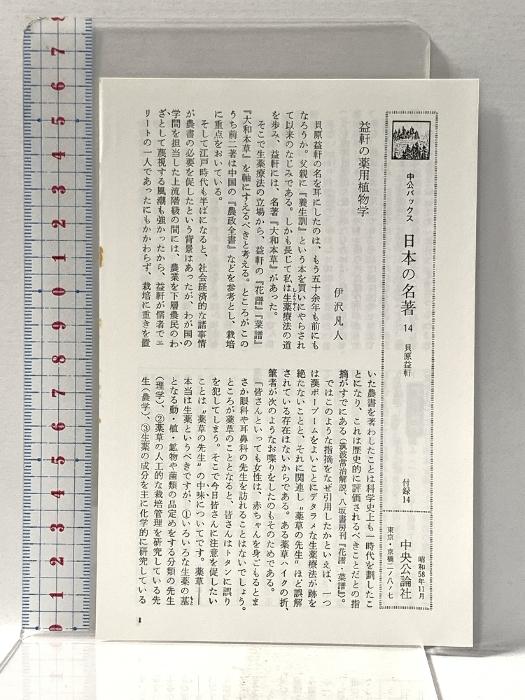 中公バックス 日本の名著 14 貝原益軒
付録14
中央公論社
昭和58年11月
東京・京橋二ノ八ノ七
益軒の薬用植物学
伊沢凡人
貝原益軒の名を耳にしたのは、もう五十余年も前にも
なろうか。父親に『養生訓』という本を買いにやらされ
て以来のなじみである。しかも長じて私は生薬療法の道
を歩み、益軒には、名著『大和本草』があった。
そこで生薬療法の立場から、益軒の『花譜』『菜譜』
『大和本草』を軸にすえるべきと考える。ところがこの
うち前二著は中国の『農政全書』などを参考とし、栽培
に重点をおいている。
そして江戸時代も半ばになると、社会経済的な諸事情
が農書の必要を促したという背景はあったが、わが国の
学問を担当した上流階級の間には、農業を下層農民のわ
ざとして蔑視する風潮も強かったから、益軒が儒者でエ
リートの一人であったにもかかわらず、栽培に重きを置
いた農書を著わしたことは科学史上も一時代を劃したこ
とになり、これは歴史的に評価されるべきことだとの指
摘がすでにある(筑波常治解説、八坂書房刊『花譜・菜譜』)。
ではこのような指摘をなぜ引用したかといえば、一つ
は漢方ブームをよいことにデタラメな生薬療法が跡を
絶たないことと、それに関連し"薬草の先生"ほど誤解
されている存在はないからである。ある薬草ハイクの折、
筆者が次のようなお喋りをしたのもそのためである。
「皆さんといっても女性は、赤ちゃんを身ごもるとま
さか眼科や耳鼻科の先生を訪れることはないでしょう。
ところが薬草のこととなると、皆さんはトタンに誤り
を犯してしまう。そこで今日皆さんに注意を促したい
ことは"薬草の先生"の中味についてです。薬草——
本当は生薬というべきですが、①いろいろな生薬の基
となる動・植・鉱物や菌類の品定めをする分類の先生
(理学)、②薬草の人工的な栽培管理を研究している先
生(農学)、③生薬の成分を主に化学的に研究している
1